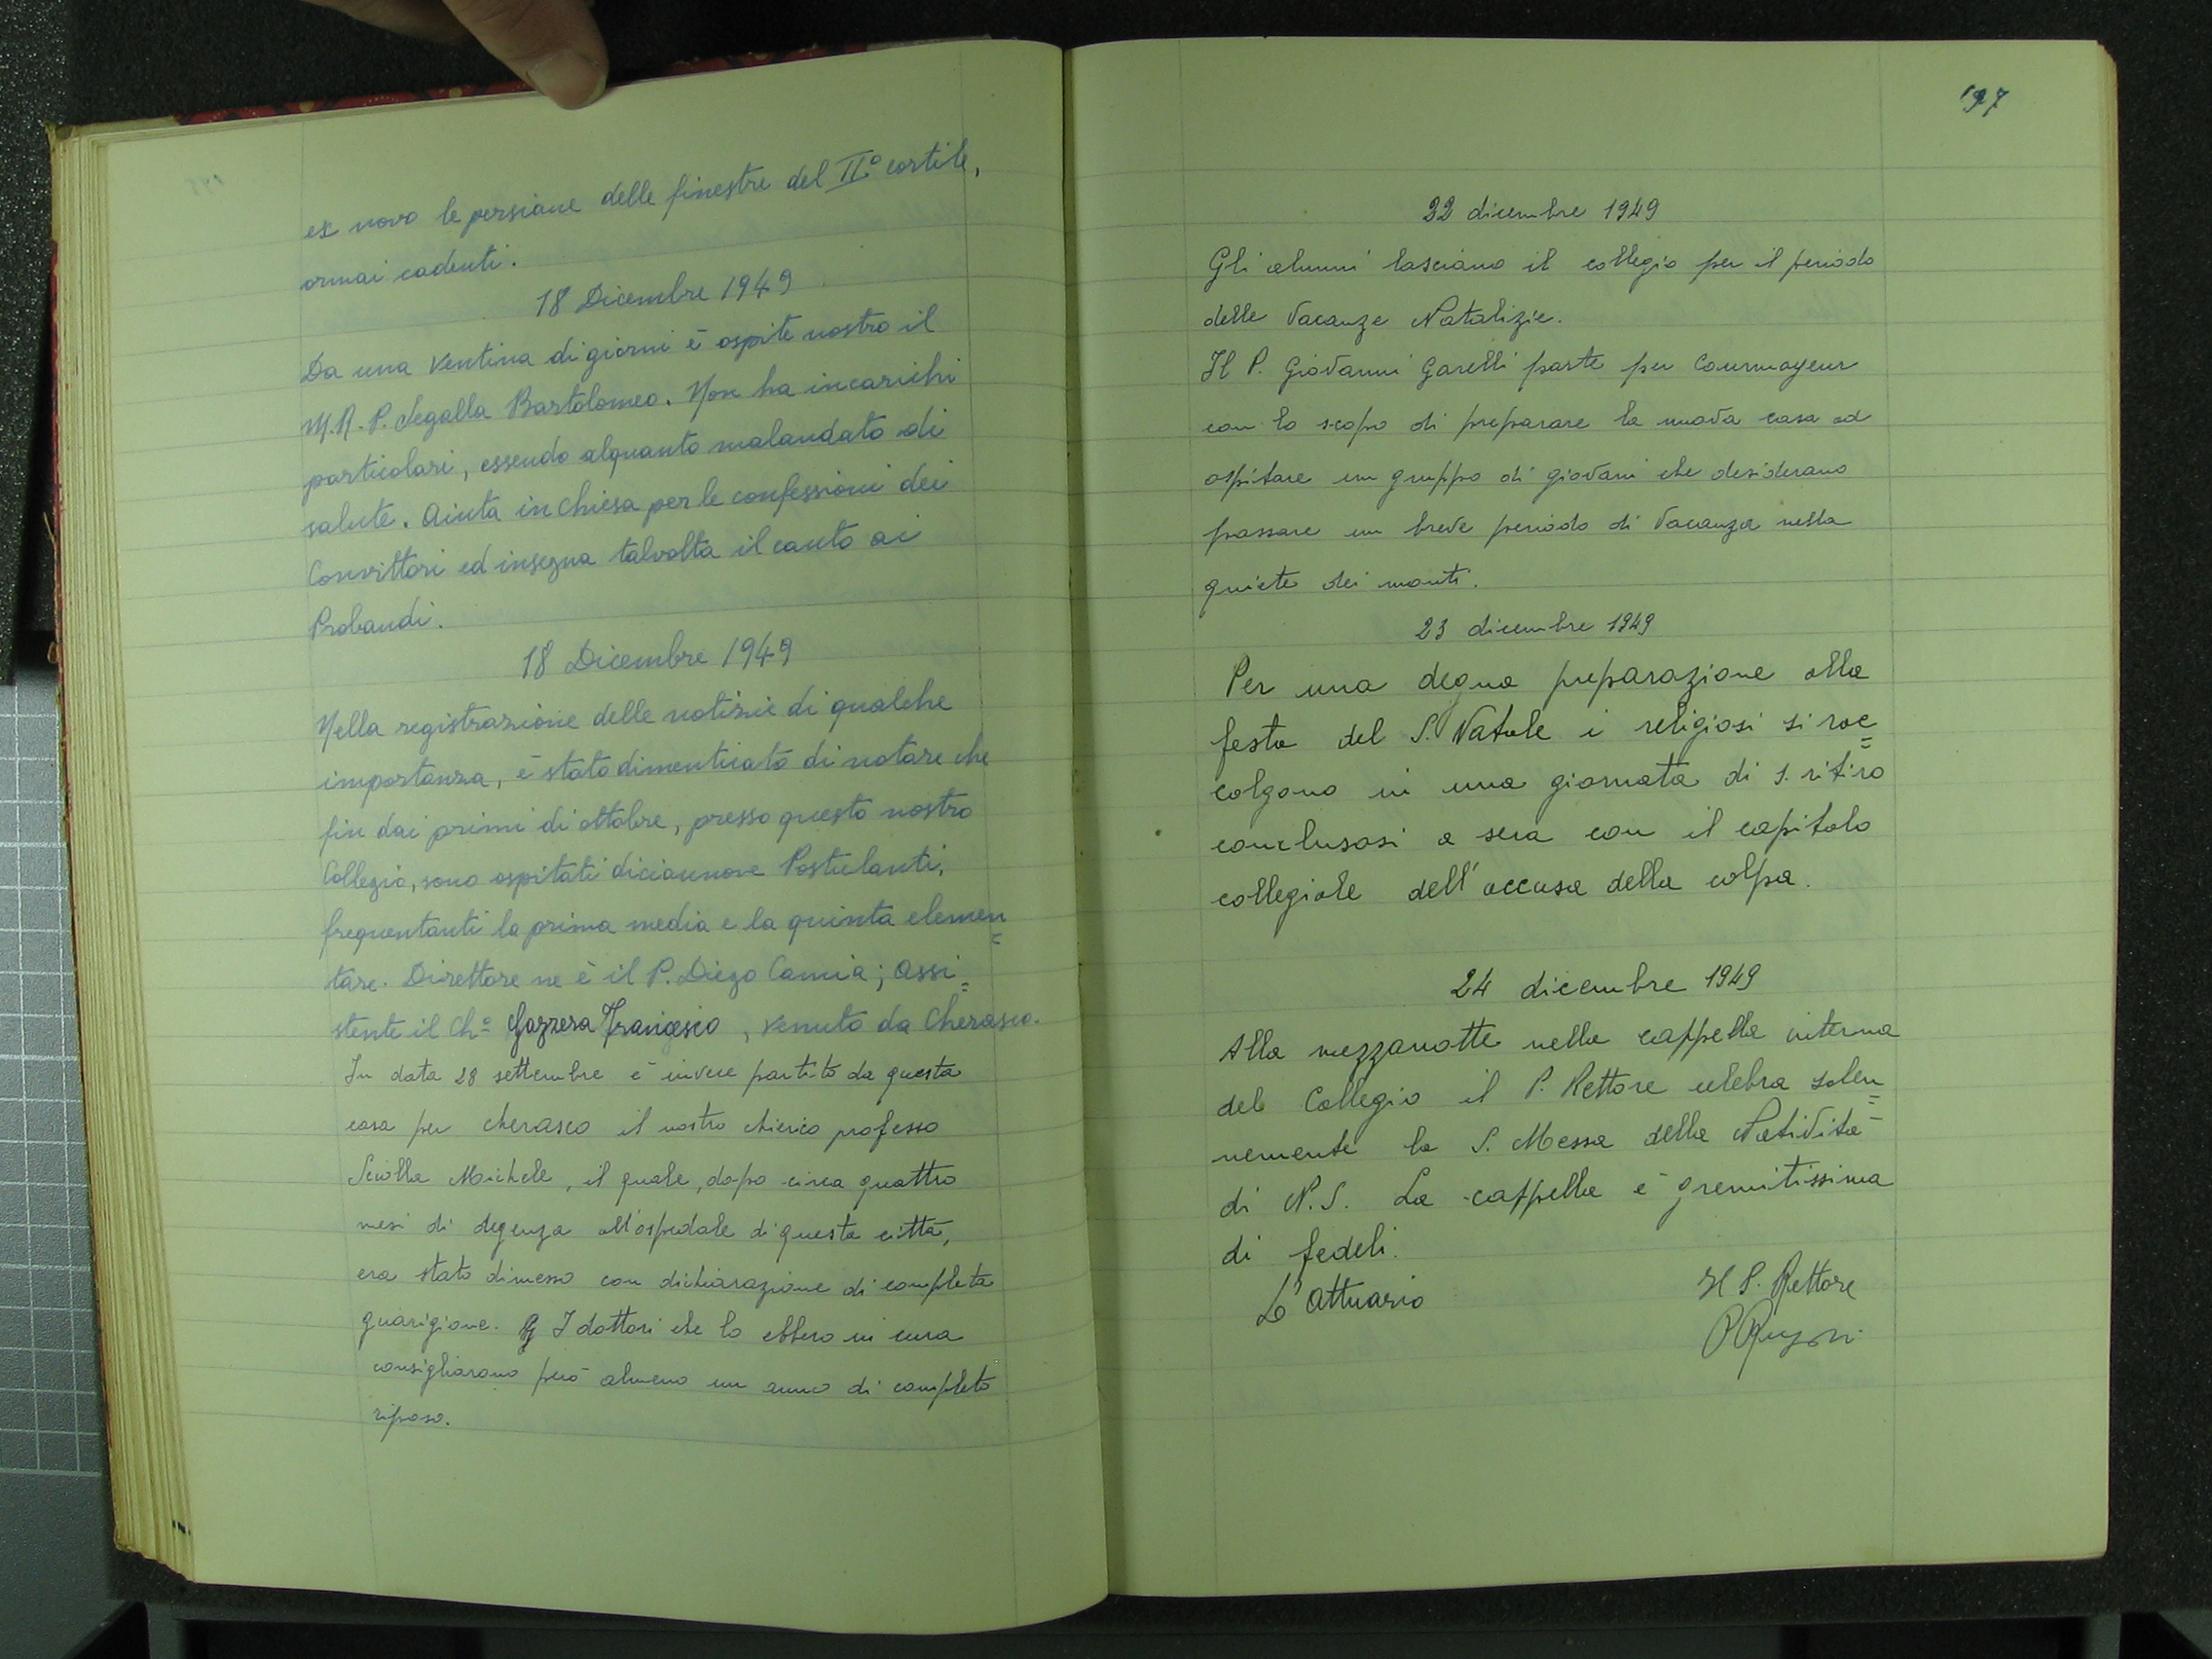 ex novo le persiane delle finestre del II° cortile,
ormai cadenti.
18 Dicembre 1949
Da una ventina di giorni è ospite nostro il
M.R.P. Segalla Bartolomeo. Non ha incarichi
particolari, essendo alquanto malandato di
salute. Aiuta in Chiesa per le confessioni dei
Convittori ed insegna talvolta il canto ai
Probandi.
18 Dicembre 1949
Nella registrazione delle notizie di qualche
importanza, è stato dimenticato di notare che
fin dai primi di ottobre, presso questo nostro
Collegio, sono ospitati diciannove Postulanti,
frequentanti la prima media e la quinta elemen=
tare. Direttore ne è il P. Diego Camia; assi=
stente il Ch° Gazzera Francesco, venuto da Cherasco.
In data 28 settembre è invece partito da questa
casa per Cherasco il nostro chierico professo
Sciolla Michele, il quale, dopo circa quattro
mesi di degenza all'ospedale di questa città,
era stato dimesso con dichiarazione di completa
guarigione. I dottori che lo ebbero in cura
consigliarono però almeno un anno di completo
riposo.
197
22 dicembre 1949
Gli alunni lasciano il collegio per il periodo
delle Vacanze Natalizie.
Il P. Giovanni Garelli parte per Courmayeur
con lo scopo di preparare la nuova casa ad
ospitare un gruppo di giovani che desiderano
passare un breve periodo di Vacanza nella
quiete dei monti.
23 dicembre 1949
Per una degna preparazione alla
festa del S. Natale i religiosi si rac=
colgono in una giornata di s. ritiro
conclusosi a sera con il capitolo
collegiale dell'accusa della colpa.
24 dicembre 1949
Alla mezzanotte nella cappella interna
del Collegio il P. Rettore celebra solen=
nemente la S. Messa della Natività
di N.S. La cappella è gremitissima
di fedeli.
L'Attuario
Il P. Rettore